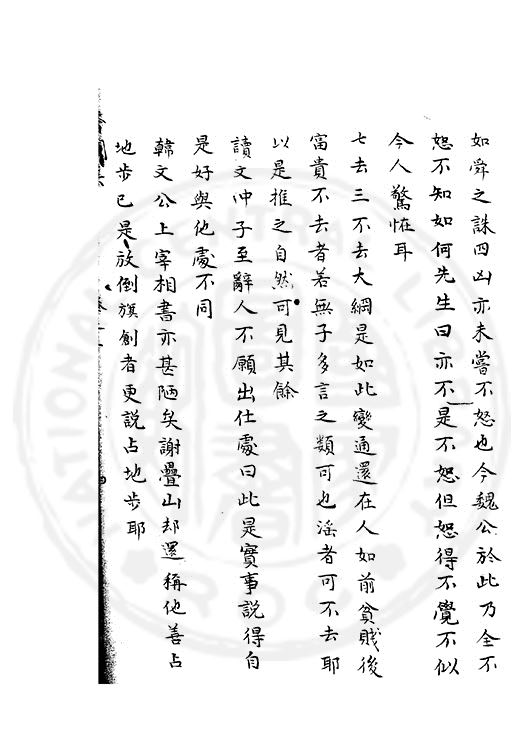 如舜之誅四凶亦未嘗不怒也今魏公於此乃全不
怒不知如何先生曰亦不是不怒但怒得不覺不似
今人驚恠耳
七去三不去大綱是如此變通還在人如前貧賤後
富貴不去者若無子多言之類可也淫者可不去耶
以是推之自然可見其餘
讀文冲子至辭人不願出仕處曰此是實事說得自
是好與他處不同
韓文公上宰相書亦甚陋矣謝疊山却還稱他善占
地步已是放倒旗創者更説占地步耶